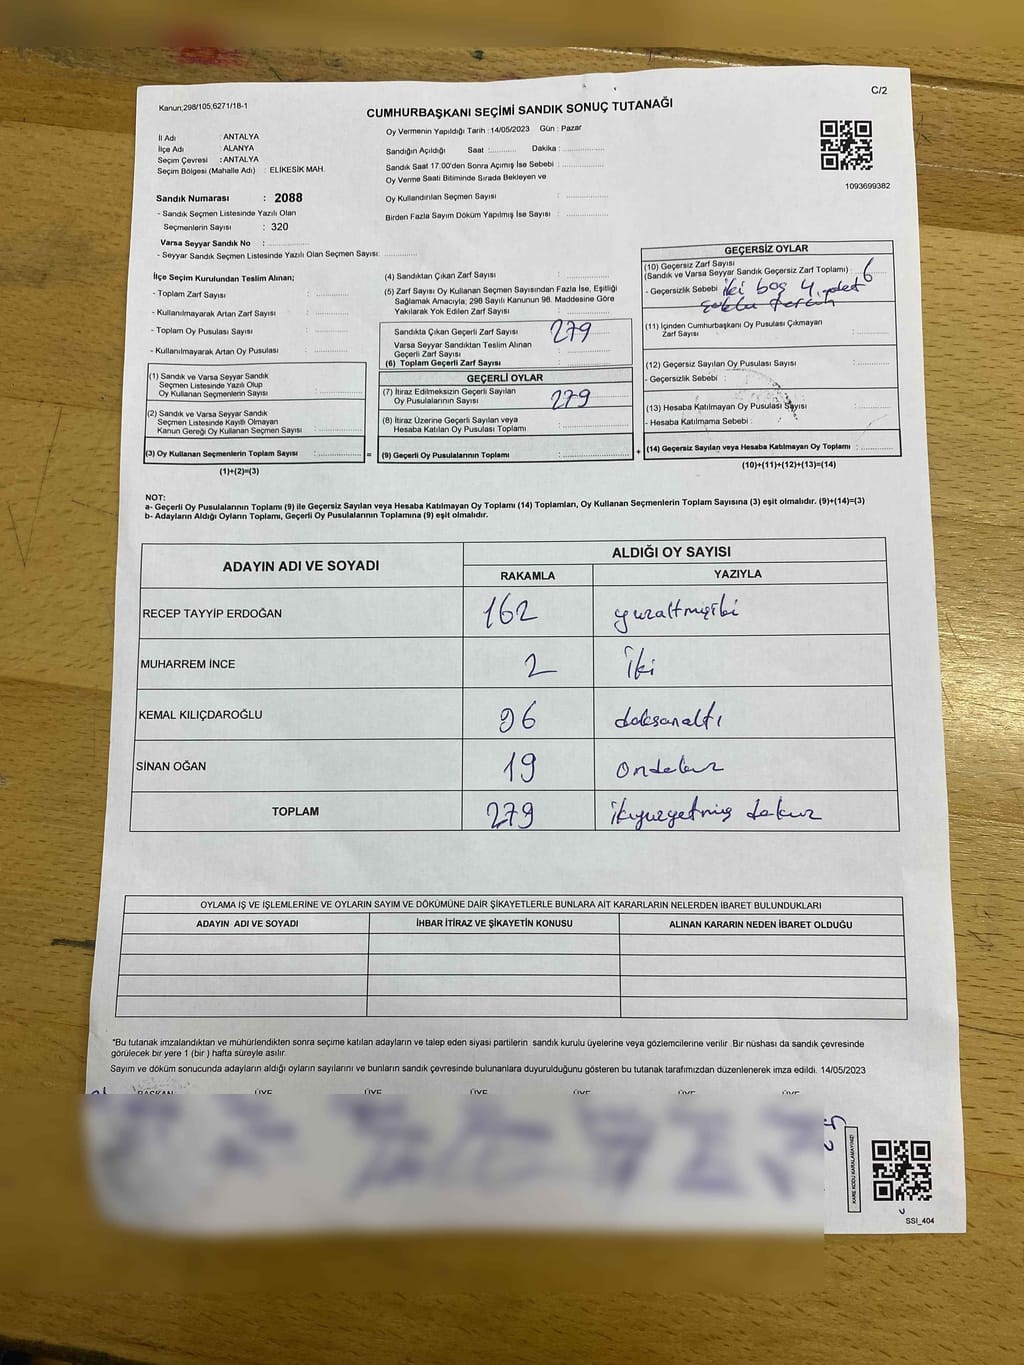 Kanun,298/105,6271/18-1
C/2
CUMHURBAŞKANI SEÇİMİ SANDIK SONUÇ TUTANAĞI
İl Adı : ANTALYA
İlçe Adı : ALANYA
Seçim Çevresi : ANTALYA
Seçim Bölgesi (Mahalle Adı) : ELİKESİK MAH.
Sandık Numarası : 2088
- Sandık Seçmen Listesinde Yazılı Olan
Seçmenlerin Sayısı : 320
Varsa Seyyar Sandık No :
- Seyyar Sandık Seçmen Listesinde Yazılı Olan Seçmen Sayısı:
Oy Vermenin Yapıldığı Tarih :14/05/2023 Gün : Pazar
Sandığın Açıldığı Saat : Dakika :
Sandık Saat 17.00'den Sonra Açımış İse Sebebi :
Oy Verme Saati Bitiminde Sırada Bekleyen ve
Oy Kullandırılan Seçmen Sayısı :
Birden Fazla Sayım Döküm Yapılmış İse Sayısı :
1093699382
İlçe Seçim Kurulundan Teslim Alınan;
- Toplam Zarf Sayısı :
- Kullanılmayarak Artan Zarf Sayısı :
- Toplam Oy Pusulası Sayısı :
- Kullanılmayarak Artan Oy Pusulası :
(1) Sandık ve Varsa Seyyar Sandık
Seçmen Listesinde Yazılı Olup
Oy Kullanan Seçmenlerin Sayısı :
(2) Sandık ve Varsa Seyyar Sandık
Seçmen Listesinde Kayıtlı Olmayan
Kanun Gereği Oy Kullanan Seçmen Sayısı :
(3) Oy Kullanan Seçmenlerin Toplam Sayısı :
(1)+(2)=(3)
=
(4) Sandıktan Çıkan Zarf Sayısı :
(5) Zarf Sayısı Oy Kullanan Seçmen Sayısından Fazla İse, Eşitliği
Sağlamak Amacıyla, 298 Sayılı Kanunun 98. Maddesine Göre
Yakılarak Yok Edilen Zarf Sayısı :
Sandıkta Çıkan Geçerli Zarf Sayısı : 279
Varsa Seyyar Sandıktan Teslim Alınan
Geçerli Zarf Sayısı :
(6) Toplam Geçerli Zarf Sayısı :
GEÇERLİ OYLAR
(7) İtiraz Edilmeksizin Geçerli Sayılan
Oy Pusulalarının Sayısı : 279
(8) İtiraz Üzerine Geçerli Sayılan veya
Hesaba Katılan Oy Pusulası Toplamı :
(9) Geçerli Oy Pusulalarının Toplamı :
+
GEÇERSİZ OYLAR
(10) Geçersiz Zarf Sayısı
(Sandık ve Varsa Seyyar Sandık Geçersiz Zarf Toplamı) : 6
- Geçersizlik Sebebi : iki boş 4. adet
(11) İçinden Cumhurbaşkanı Oy Pusulası Çıkmayan
Zarf Sayısı :
(12) Geçersiz Sayılan Oy Pusulası Sayısı :
- Geçersizlik Sebebi :
(13) Hesaba Katılmayan Oy Pusulası Sayısı :
- Hesaba Katılmama Sebebi :
(14) Geçersiz Sayılan veya Hesaba Katılmayan Oy Toplamı :
(10)+(11)+(12)+(13)=(14)
NOT:
a- Geçerli Oy Pusulalarının Toplamı (9) ile Geçersiz Sayılan veya Hesaba Katılmayan Oy Toplamı (14) Toplamları, Oy Kullanan Seçmenlerin Toplam Sayısına (3) eşit olmalıdır. (9)+(14)=(3)
b- Adayların Aldığı Oyların Toplamı, Geçerli Oy Pusulalarının Toplamına (9) eşit olmalıdır.
ADAYIN ADI VE SOYADI ALDIĞI OY SAYISI
RAKAMLA YAZIYLA
RECEP TAYYİP ERDOĞAN 162 yuzaltmışiki
MUHARREM İNCE 2 iki
KEMAL KILIÇDAROĞLU 96 doksanaltı
SİNAN OĞAN 19 Ondokuz
TOPLAM 279 ikiyuzyetmiş dokuz
OYLAMA İŞ VE İŞLEMLERİNE VE OYLARIN SAYIM VE DÖKÜMÜNE DAİR ŞİKAYETLERLE BUNLARA AİT KARARLARIN NELERDEN İBARET BULUNDUKLARI
ADAYIN ADI VE SOYADI İHBAR İTİRAZ VE ŞİKAYETİN KONUSU ALINAN KARARIN NEDEN İBARET OLDUĞU
*Bu tutanak imzalandıktan ve mühürlendikten sonra seçime katılan adayların ve talep eden siyasi partilerin sandık kurulu üyelerine veya gözlemcilerine verilir .Bir nüshası da sandık çevresinde
görülecek bir yere 1 (bir ) hafta süreyle asılır.
Sayım ve döküm sonucunda adayların aldığı oyların sayılarını ve bunların sandık çevresinde bulunanlara duyurulduğunu gösteren bu tutanak tarafımızdan düzenlenerek imza edildi. 14/05/2023
BAŞKAN ÜYE ÜYE ÜYE ÜYE ÜYE ÜYE
KARE KODU KARALAMAYINIZ!
SSI_404